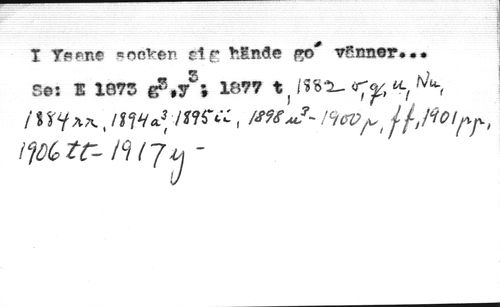 I Ysane socken sig hände go´ vänner...
Se: E 1873 g³,y³; 1877 t, 1882 σ, q, u, Nu,
1884 rr, 1894 a³, 1895 ii, 1898 u³-1900 p, ff, 1901 pp,
1906 tt-1917 y-